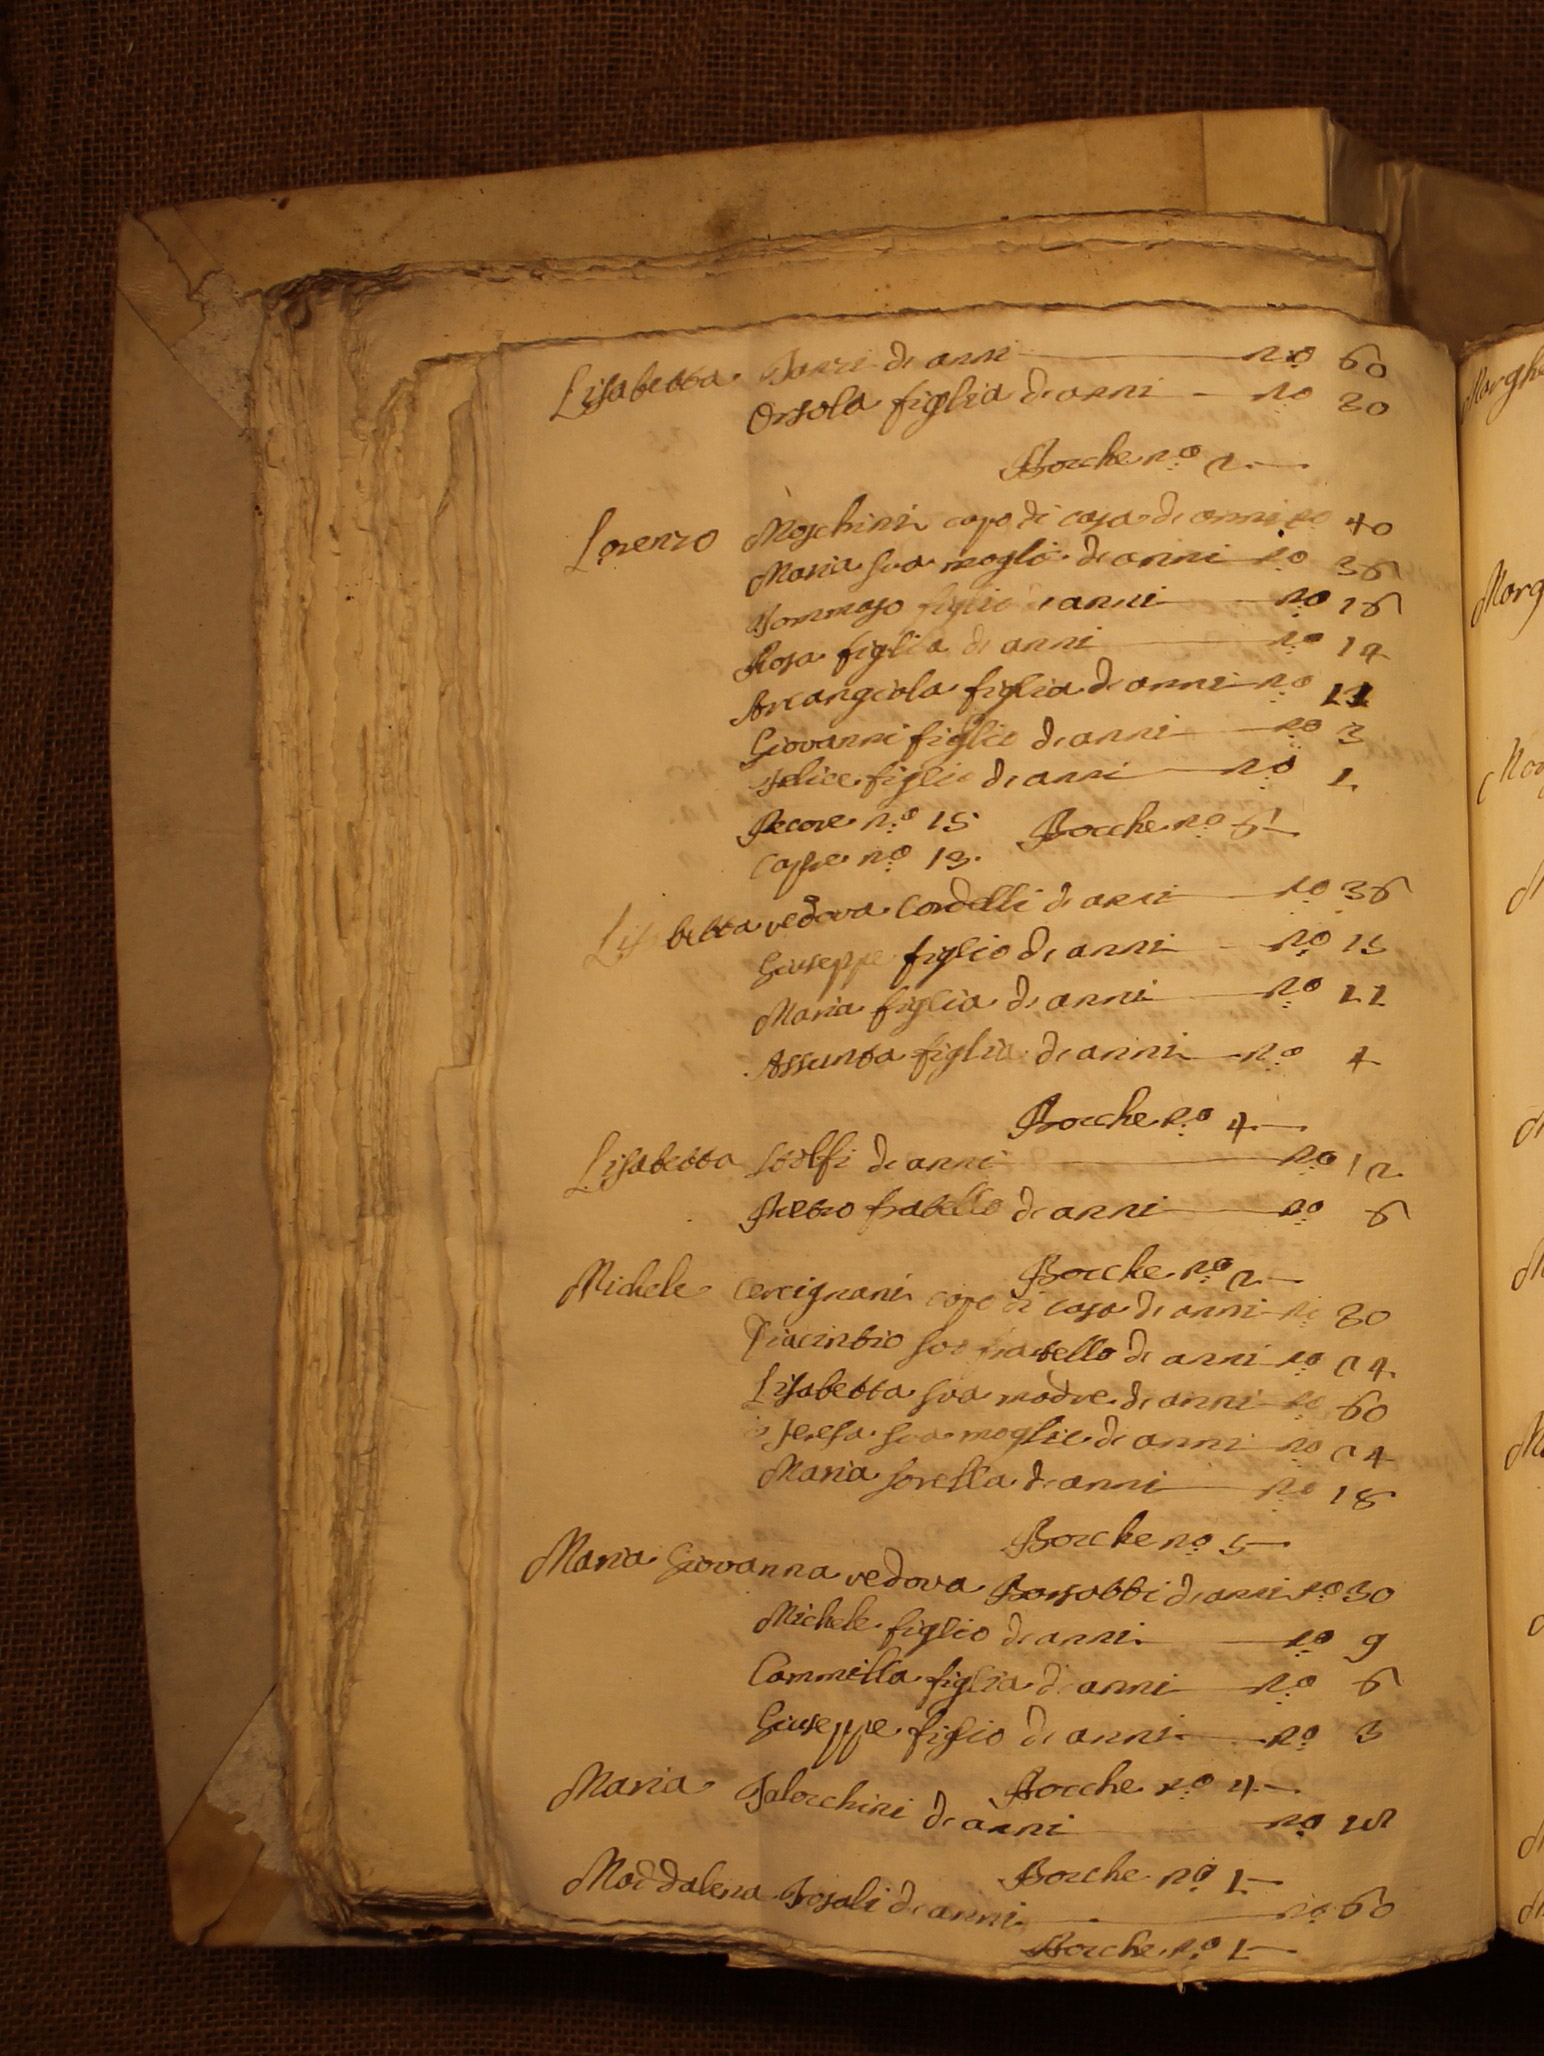 Lisabetta Tanzi di anni n.o 60
Orsola figlia di anni n.o 20
Bocche n.o 2
Lorenzo Moschini capo di casa di anni n.o 40
Maria sua moglie di anni n.o 36
Tommaso figlio di anni n.o 16
Rosa figlia di anni n.o 14
Arcangiola figlia di anni n.o
Giovanni figlio di anni n.o 3
Felice figlio di anni n.o 1
Pecore n.o 15 Bocche n.o
Capre n.o 13.
Lisabetta vedova Cordelli di anni n.o 36
Giuseppe figlio di anni n.o 15
Maria figlia di anni n.o 11
Assunta figlia di anni n.o 4
Bocche n.o 4
Lisabetta Stolfi di anni n.o 12
Pietro fratello di anni n.o 6
Bocche n.o 2
Michele Cercignani capo di casa di anni n.o 30
Giacintio suo fratello di anni n.o 24
Lisabetta sua madre di anni n.o 60
Teresa sua moglie di anni n.o 24
Maria sorella di anni n.o 18
Bocche n.o 5
Maria Giovanna vedova di anni n.o 30
Michele figlio di anni n.o 9
Cammilla figlia di anni n.o 6
Giuseppe figlio di anni n.o 3
Bocche n.o 4
Maria Falocchini di anni n.o
Bocche n.o 1
Maddalena Frosali di anni n.o 60
Bocche n.o 1